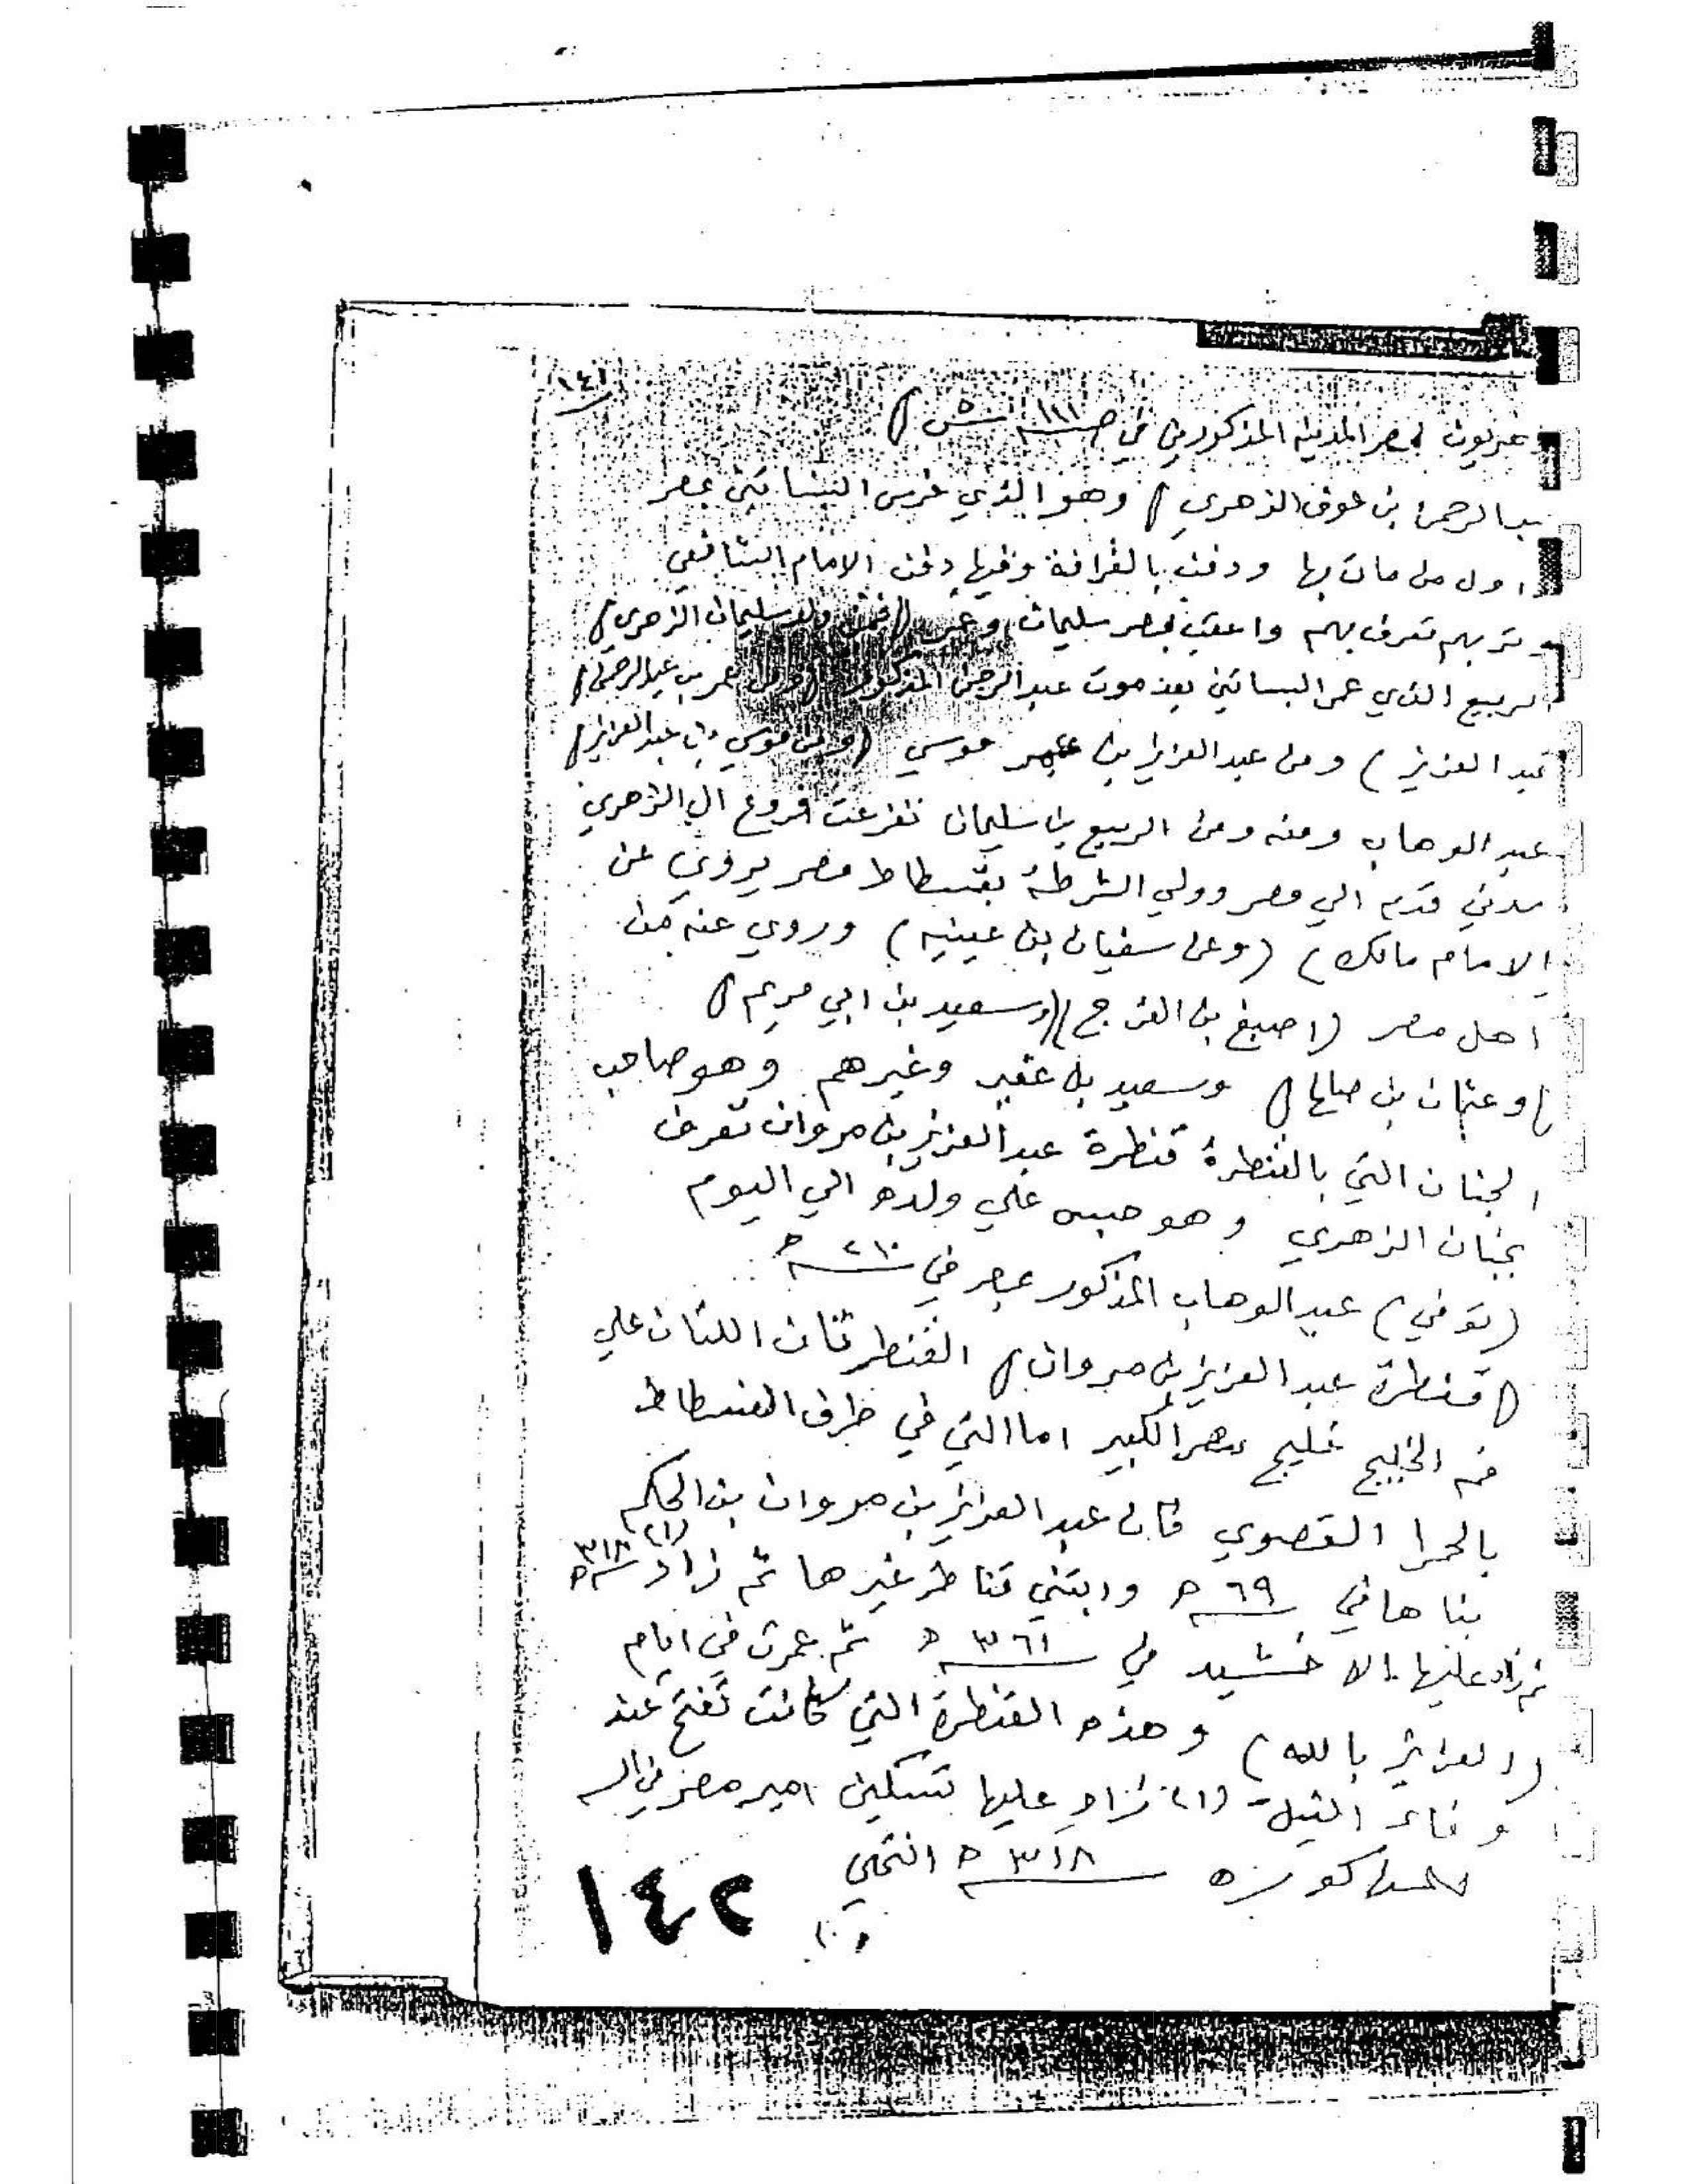 ١٤١
عمريون بمصر المدينه المذكورين في ص ١١١ ش ٥)
عبد الرحمن بن عوف الزهري) وهو الذي غرس البساتين بمصر
اول من مات بها ودفن بالقرافة وفيها دفن الامام الشافعي
وتربهم تعرف بهم واعقب بمصر سليمان وعمر (فمن ولد سليمان الزهري)
الربيع الذي عمر البساتين بعد موت عبد الرحمن المذكور (ومن عمر بن عبد الرحمن)
عبد العزيز) ومن عبد العزيز بن عمر موسي (ومن موسي بن عبد العزيز)
عبد الوهاب ومنه ومن الربيع بن سليمان تفرعت فروع ال الزهري
مدني قدم الي مصر وولي الشرطة بفسطاط مصر يروي عن
الامام مالك) (وعن سفيان بن عيينه) وروي عنه من
اهل مصر (اصبغ بن الفرج) (وسعيد بن ابي مريم)
(وعثمان بن صالح) وسعيد بن عفير وغيرهم وهو صاحب
الجنان التي بالقنطرة قنطرة عبد العزيز بن مروان تعرف
بجنان الزهري وهو حبس علي ولده الي اليوم
(توفي) عبد الوهاب المذكور بمصر في ٢١٠ ه
(قنطرة عبد العزيز بن مروان) القنطرتان اللتان علي
فم الخليج خليج مصر الكبير اما التي في طرف الفسطاط
بالحمرا القصوي فان عبد العزيز بن مروان بن الحكم
بناها في ٦٩ ه وابتني قناطر غيرها ثم زاد (١) ٣١٨ ه
ثم زاد عليها الاخشيد في ٣٦١ ه ثم عمرت في ايام
(العزيز بالله) وهذه القنطرة التي كانت تفتح عند
وفاء النيل - (١) زاد عليها تسكين امير مصر في
٣١٨ ه انتهي
١٤٢